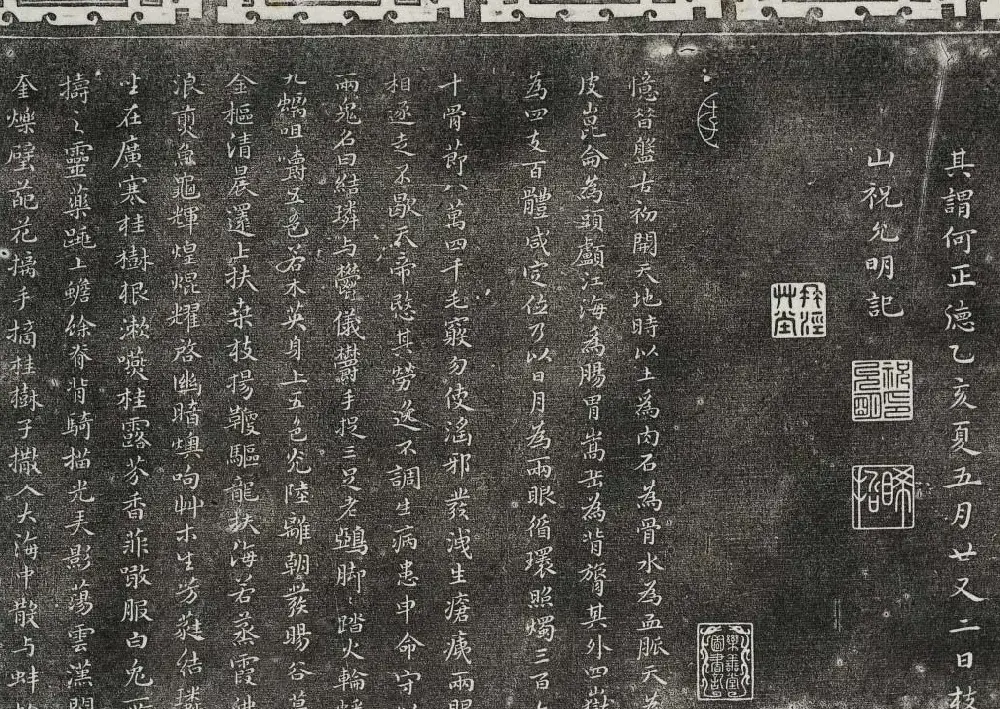 其謂何正德乙亥夏五月廿又二日枝
山祝允明記
憶昔盤古初開天地時以土為肉石為骨水為血脈天為
皮崑侖為頭顱江海為腸胃嵩岳為背膂其外四嶽
為四支百體咸定位乃以日月為兩眼循環照燭三百
十骨莭八萬四千毛竅勿使滛邪發洩生瘡痍兩眼
相逐走不歇天帝愍其勞逸不調生病患申命守以
兩鬼名曰結璘与鬱儀鬱儀手捉三足老鵶脚踏火輪蟠
九螭咀嚼五色若木英身上五色光陸離朝發暘谷暮
金樞清晨還上扶桒枝揚鞭驅龍扶海若蒸霞沸
浪煎魚龜輝煌焜耀启幽暗燠呴艸木生芳蕤結璘
坐在廣寒桂樹根漱嚥桂露芬香菲噉服白兔所
擣之靈藥跳上蟾蜍脊背騎描光弄影蕩雲漢閃
奎爍壁葩花摛手摘桂樹子撒入大海中散与蚌蛤